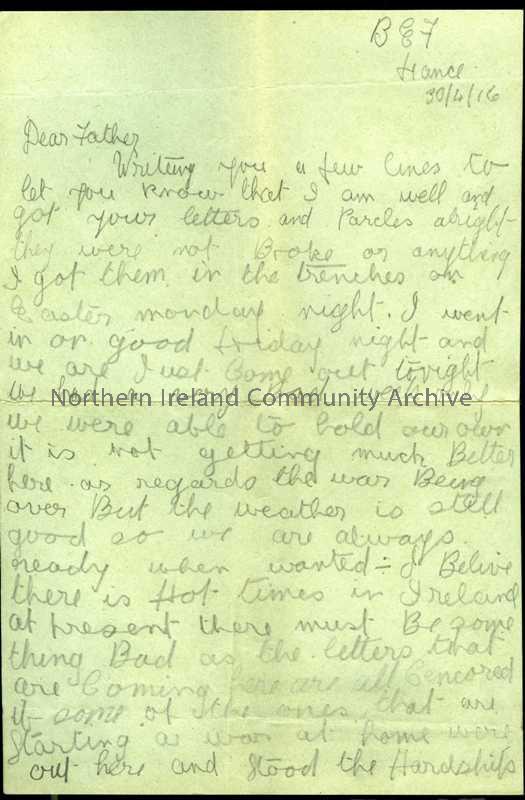 B E F
France
30/4/16
Dear Father
Writing you a few lines to
let you know that I am well and
got your letters and Parcles alright
they were not Broke or anything
I got them in the trenches on
Easter monday night. I went
in on good friday night and
we are Just Come out tonight
we had a very
Northern Ireland Community Archive
we were able to hold our own
it is not getting much Better
here as regards the war Being
over But the weather is still
good so we are always
ready when wanted - I Belive
there is Hot times in Ireland
at present there must Be some
thing Bad as the letters that
are Coming here are all Cencored
if some of the ones that are
Starting a war at home were
out here and Stood the Hardships